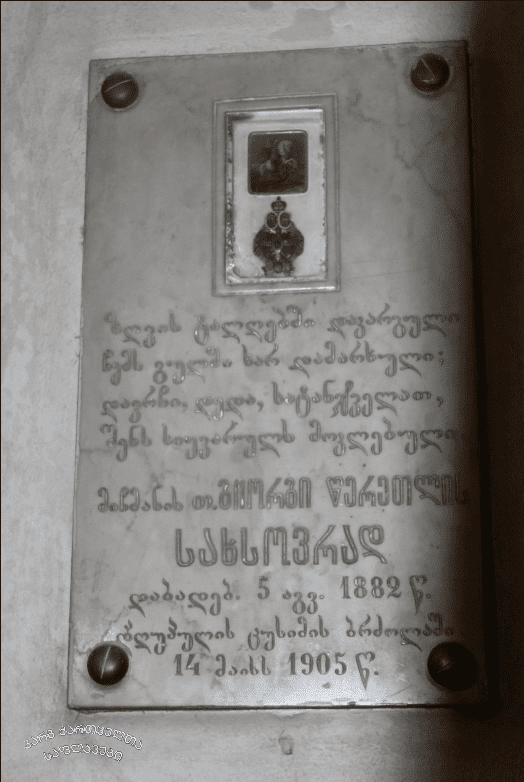 ზღვის ტალღებში დაკარგული
ჩემს გულში ხარ დამარხული;
დავრჩი, დედა, სატანჯველათ,
შენს სიყვარულს მოკლებული.
მიჩმანის თ. გიორგი წერეთლის
სახსოვრად
დაბადებ. 5 აგვ. 1882 წ.
დაღუპულის ცუსიმის ბრძოლაში
14 მაისს 1905 წ.
კარგ ქართველთა
საფლავები